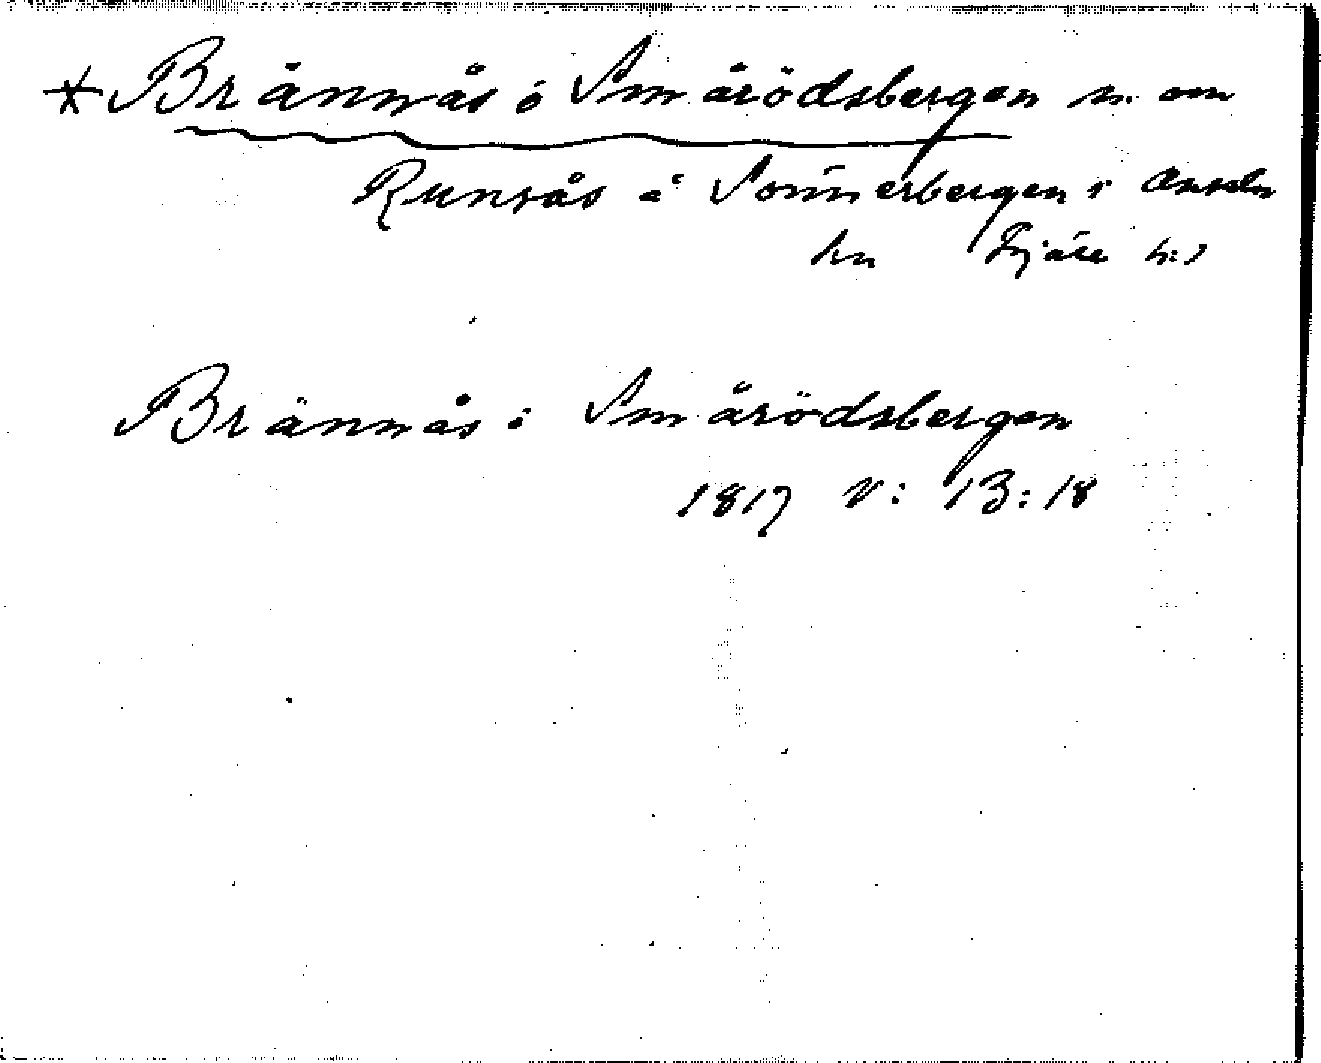 * Brännås i Smårödsbergen n. om
Runsås i Sönnerbergen i
sn Fjäre h:d
Brännås i Smårödsbergen
1817 V: 13:18